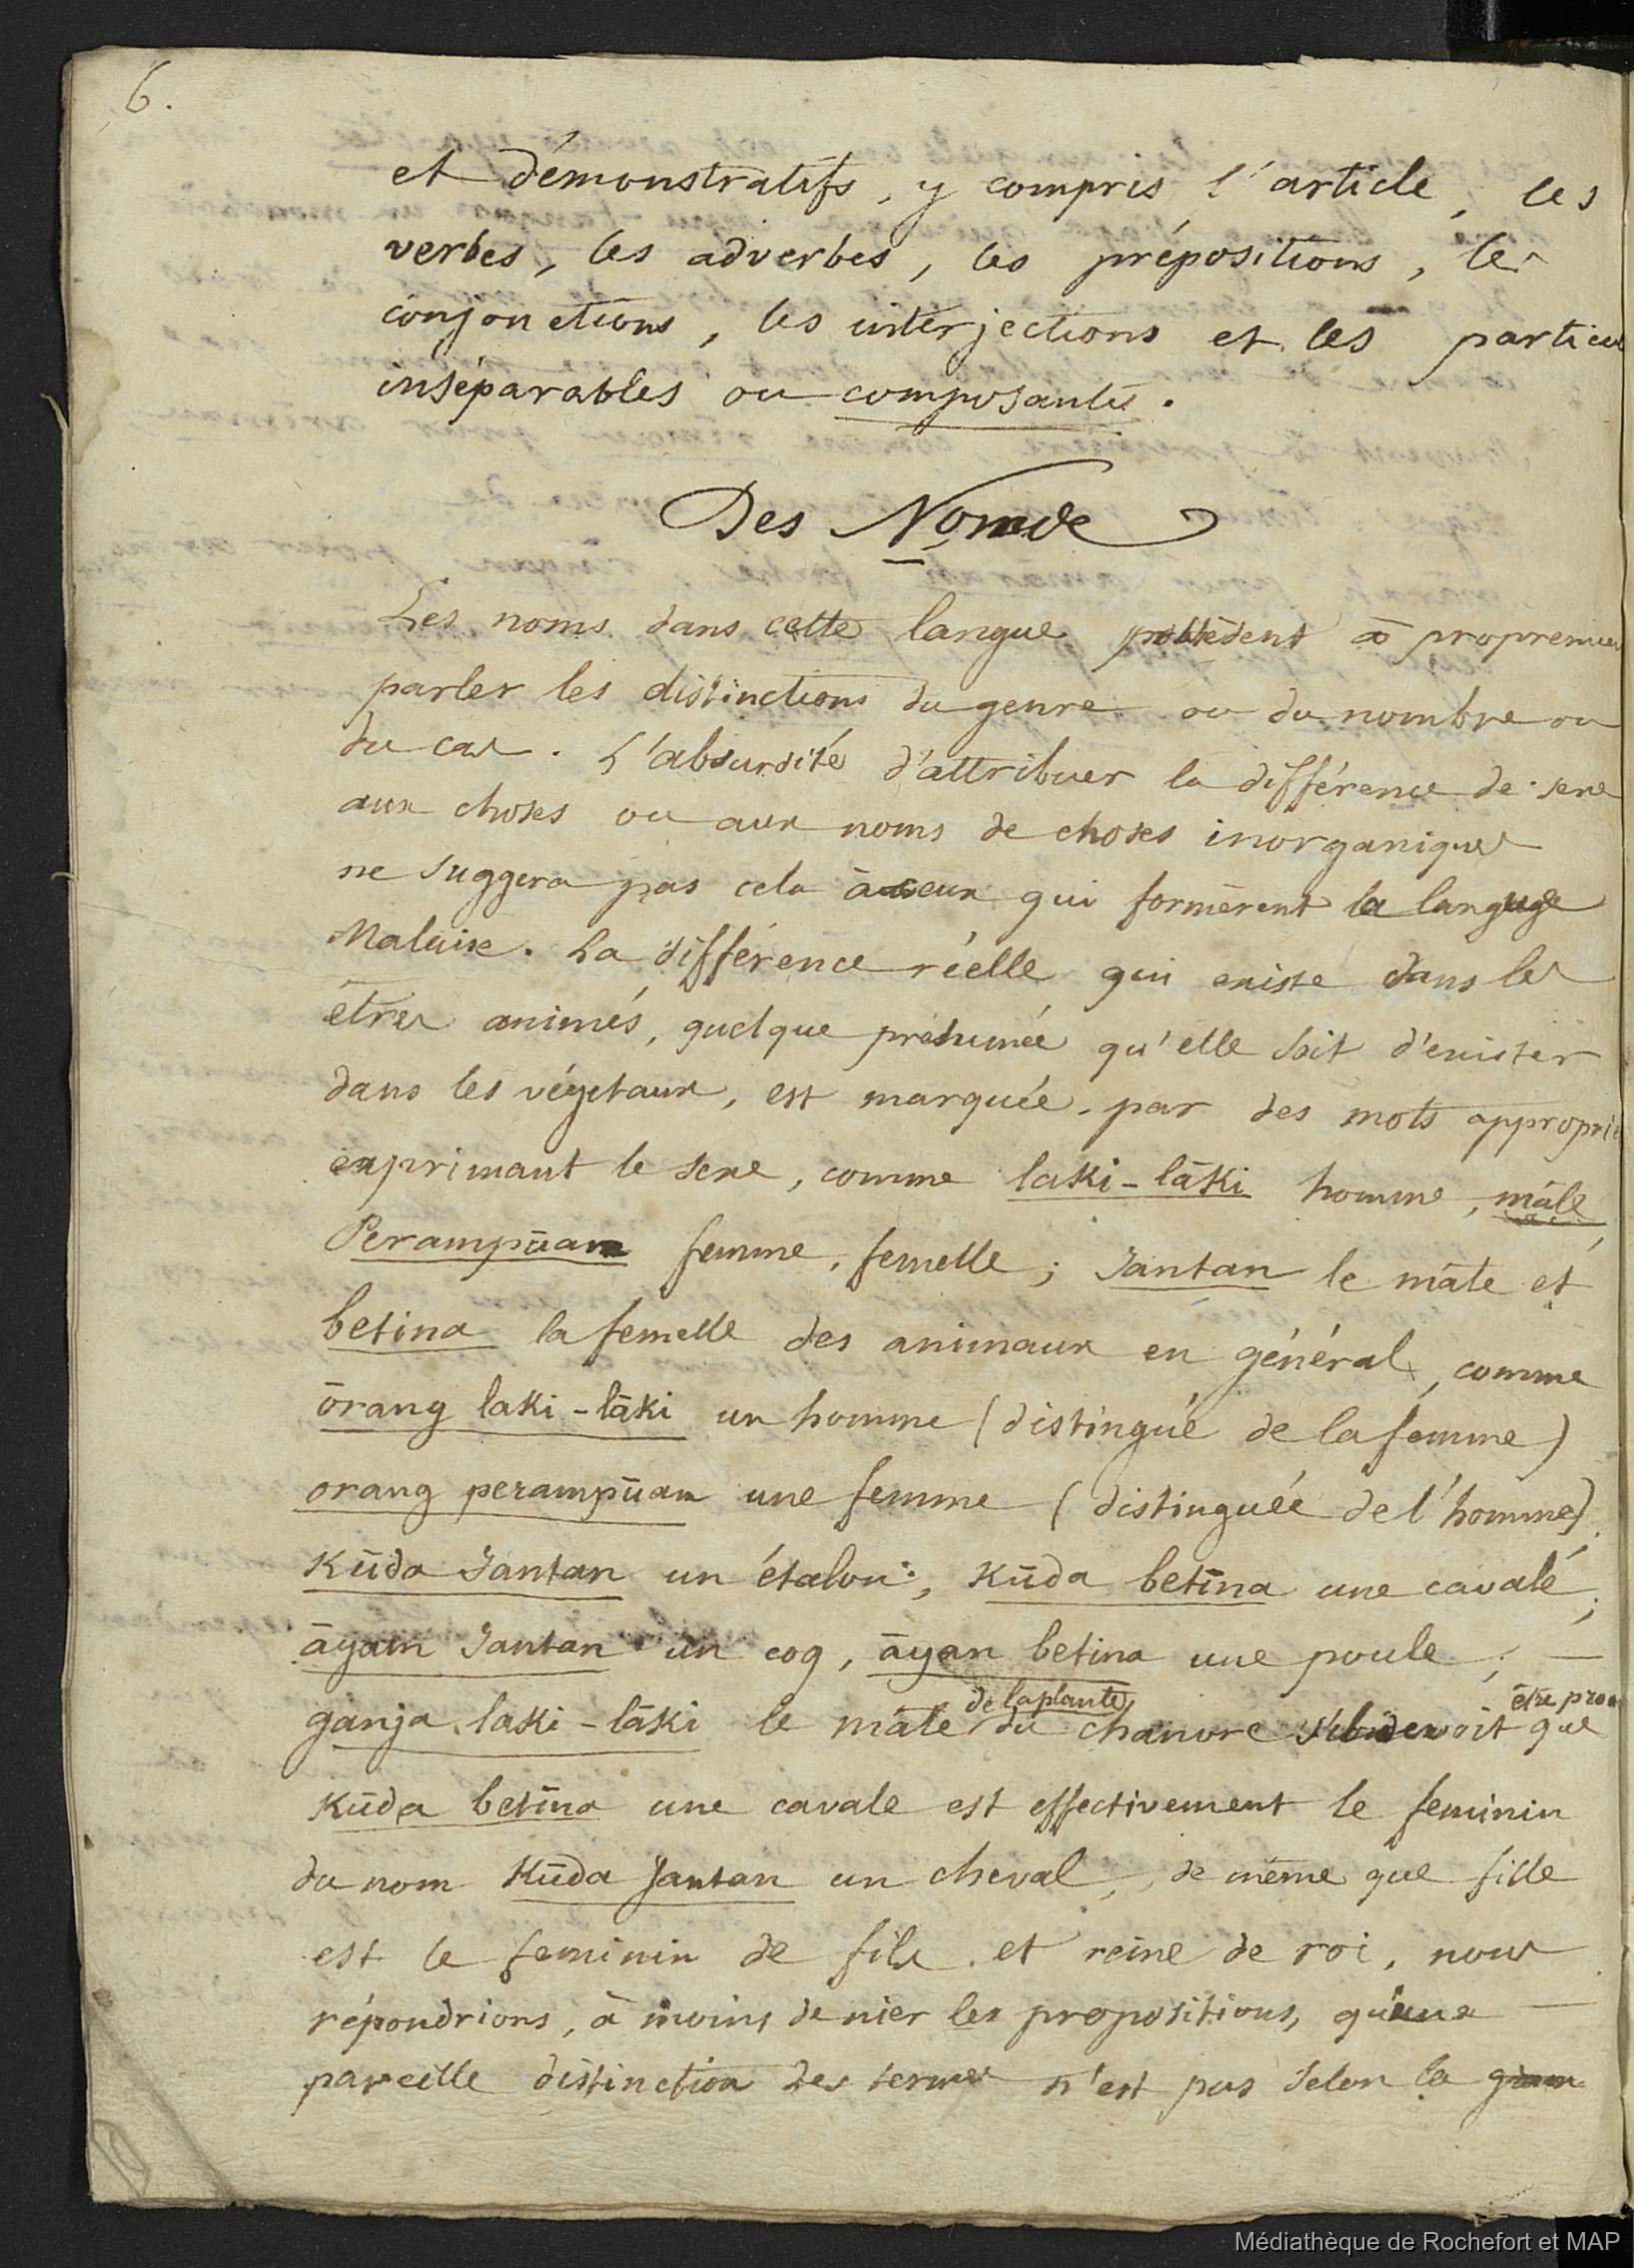 6.
et démonstratifs, y compris l'article, les
verbes, les adverbes, les prépositions, les
conjonctions, les interjections et les particul
inséparables ou composantes.
Des Noms
Les noms dans cette langue possèdent à propremen
parler les distinctions du genre ou du nombre ou
du cas. L'absurdité d'attribuer la différence de sexe
aux choses ou aux noms de choses inorganiques
ne suggera pas cela à ceux qui formèrent la langue
Malaise. La différence réelle qui existe dans les
êtres animés, quelque présumée qu'elle soit d'exister
dans les végetaux, est marquée par des mots approprié
exprimant le sexe, comme laki-lāki homme, mâle,
Perampūan femme, femelle; Jantan le mâle et
betina la femelle des animaux en général, comme
ōrang laki-lāki un homme (distingué de la femme)
orang perampūan une femme (distinguée de l'homme)
Kūda Jantan un étalon; Kūda betīna une cavale;
āyam Jantan un coq, āyan betina une poule; —
de la plante être pro
ganja laki-lāki le mâle du chanvre devoit que
Kūda betīna une cavale est effectivement le feminin
du nom Kūda Jantan un cheval, de même que fille
est le feminin de fils et reine de roi, nous
répondrions, à moins de nier les propositions, qu'une —
pareille distinction des termes n'est pas selon la
Médiathèque de Rochefort et MAP